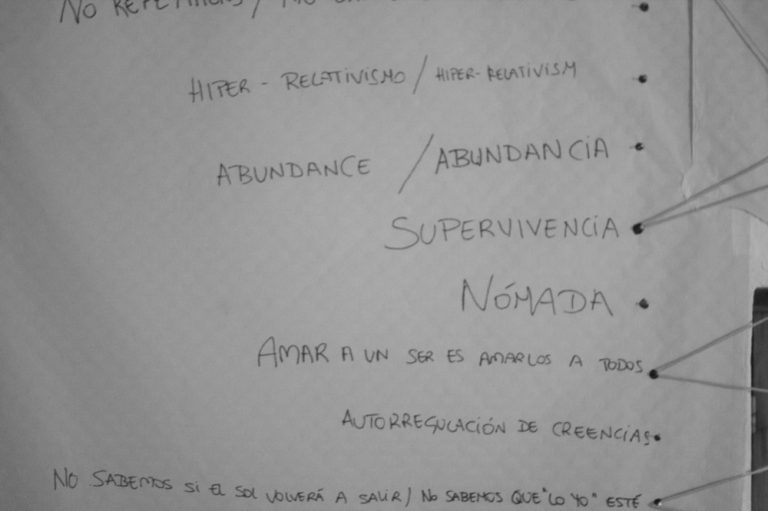 NO
HIPER - RELATIVISMO / HIPER-RELATIVISM
ABUNDANCE / ABUNDANCIA
SUPERVIVENCIA
NÓMADA
AMAR A UN SER ES AMARLOS A TODOS
AUTORREGULACIÓN DE CREENCIAS
NO SABEMOS SI EL SOL VOLVERÁ A SALIR / NO SABEMOS QUE "LO YO" ESTÉ